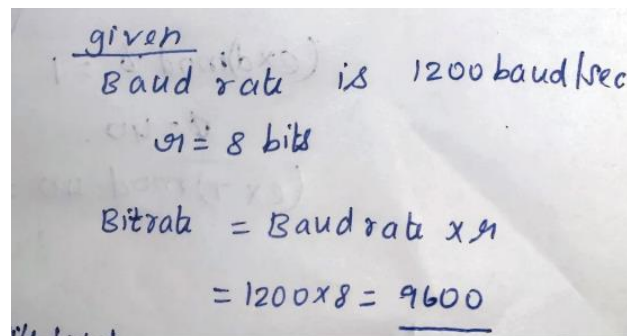 given
Baud rate is 1200 baud/sec
r = 8 bits
Bitrate = Baud rate x r
= 1200x8 = 9600